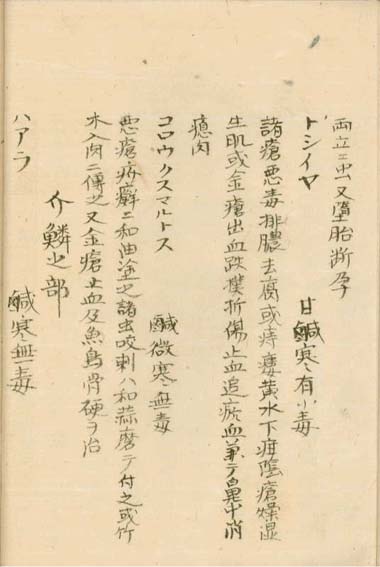 両立ニ虫又墮胎断孕
トシイヤ 甘鹹寒有小毒
諸瘡悪毒排膿去腐或痔瘻黄水下疳陰瘡燥湿
生肌或金瘡出血跌撲折傷止血追瘀血兼テ鼻中消
瘜肉
コロウクスマルトス 鹹微寒無毒
悪瘡疥癬ニ和油塗之諸虫咬刺ハ和蒜磨テ付之或竹
木入肉ニ傳之又金瘡止血及魚鳥骨硬ヲ治
介鱗之部
ハアラ 鹹寒無毒